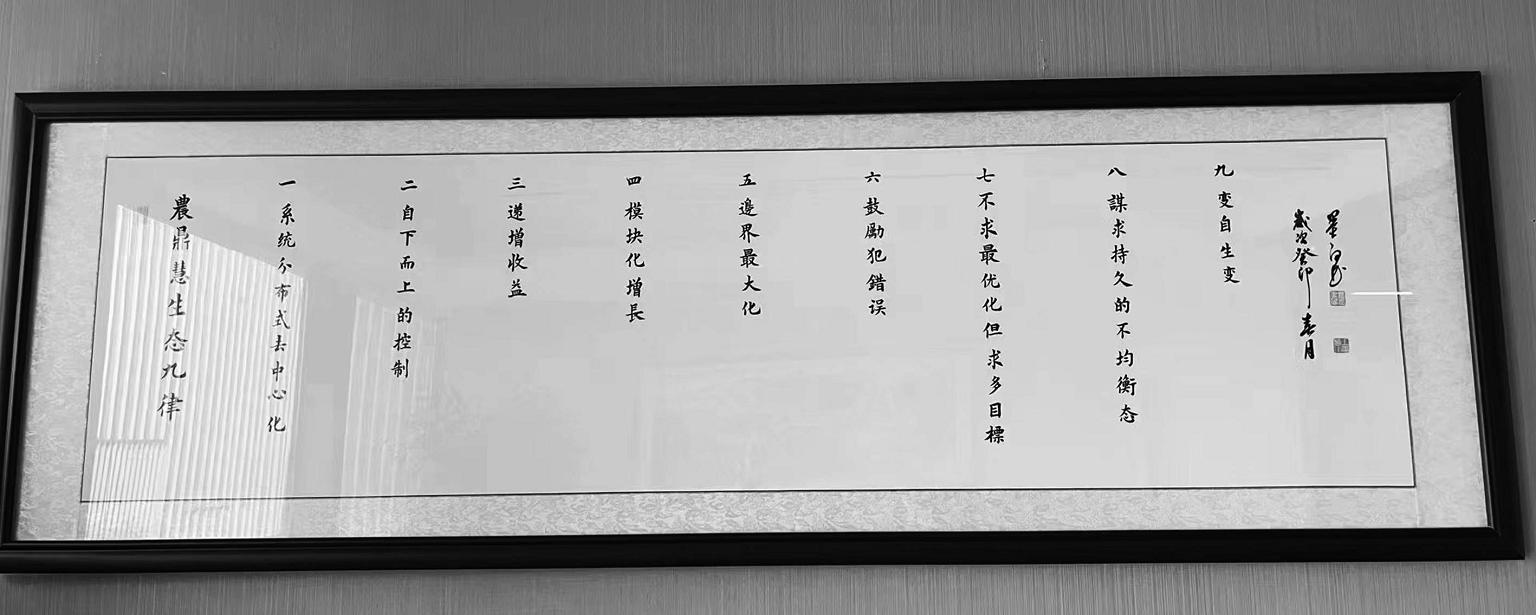 農鼎慧生态九律
一系统分布式去中心化
二自下而上的控制
三递增收益
四模块化增長
五邊界最大化
六鼓勵犯錯误
七不求最优化但求多目標
八謀求持久的不均衡态
九变自生变
歲次癸卯春月